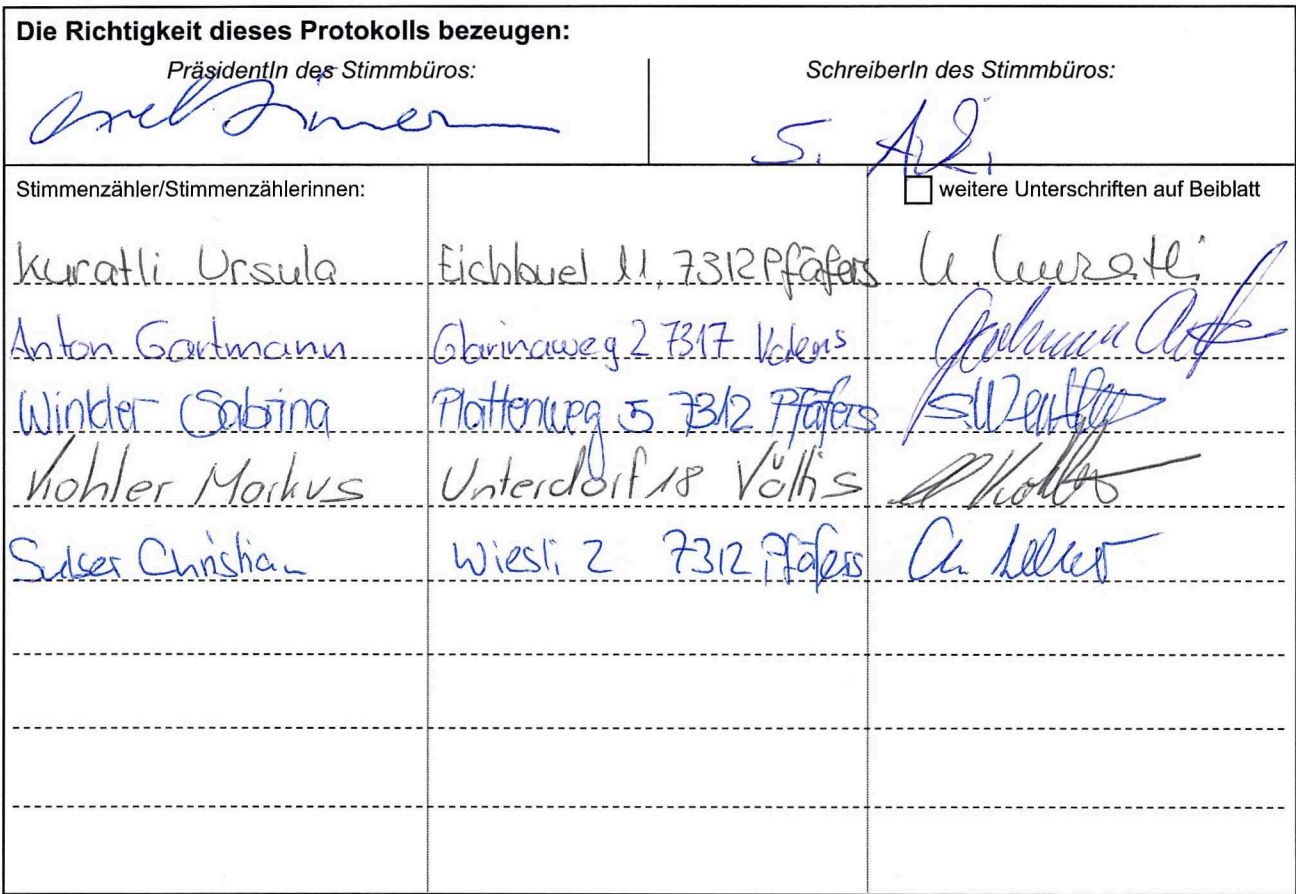 Die Richtigkeit dieses Protokolls bezeugen:
PräsidentIn des Stimmbüros: SchreiberIn des Stimmbüros:
S.
Stimmenzähler/Stimmenzählerinnen: weitere Unterschriften auf Beiblatt
Kuratli Ursula Eichbuel 11, 7312 Pfäfers U. Kuratli
Anton Gartmann Glarinaweg 2 7317 Valens
Winkler Sabrina Plattenweg 5 7312 Pfäfers
Kohler Markus Unterdorf 18 Vättis M Kohler
Sulser Christian Wiesli 2 7312 Pfäfers Ch. Sulser